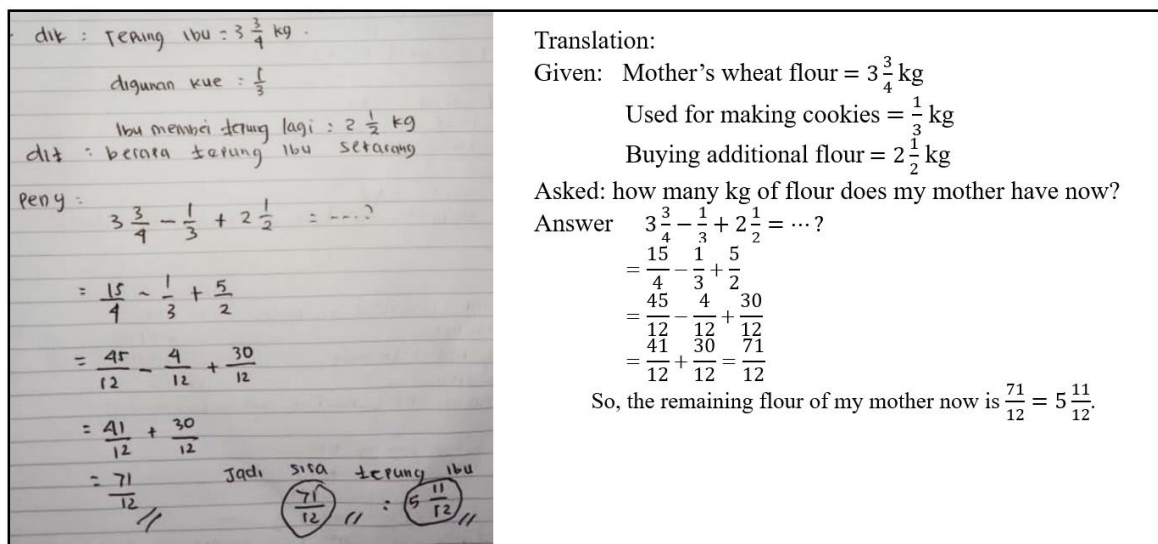 dik : Tepung ibu = 3 3/4 kg.
digunan kue : 1/3
Ibu membei tepung lagi : 2 1/2 kg
dit : berara tepung ibu sekarang
Peny :
3 3/4 - 1/3 + 2 1/2 = ....?
= 15/4 - 1/3 + 5/2
= 45/12 - 4/12 + 30/12
= 41/12 + 30/12
= 71/12 //
Jadi sisa tepung ibu
71/12 // : 5 11/12 //
Translation:
Given: Mother's wheat flour = 3 3/4 kg
Used for making cookies = 1/3 kg
Buying additional flour = 2 1/2 kg
Asked: how many kg of flour does my mother have now?
Answer 3 3/4 − 1/3 + 2 1/2 = ⋯ ?
= 15/4 − 1/3 + 5/2
= 45/12 − 4/12 + 30/12
= 41/12 + 30/12 = 71/12
So, the remaining flour of my mother now is 71/12 = 5 11/12.